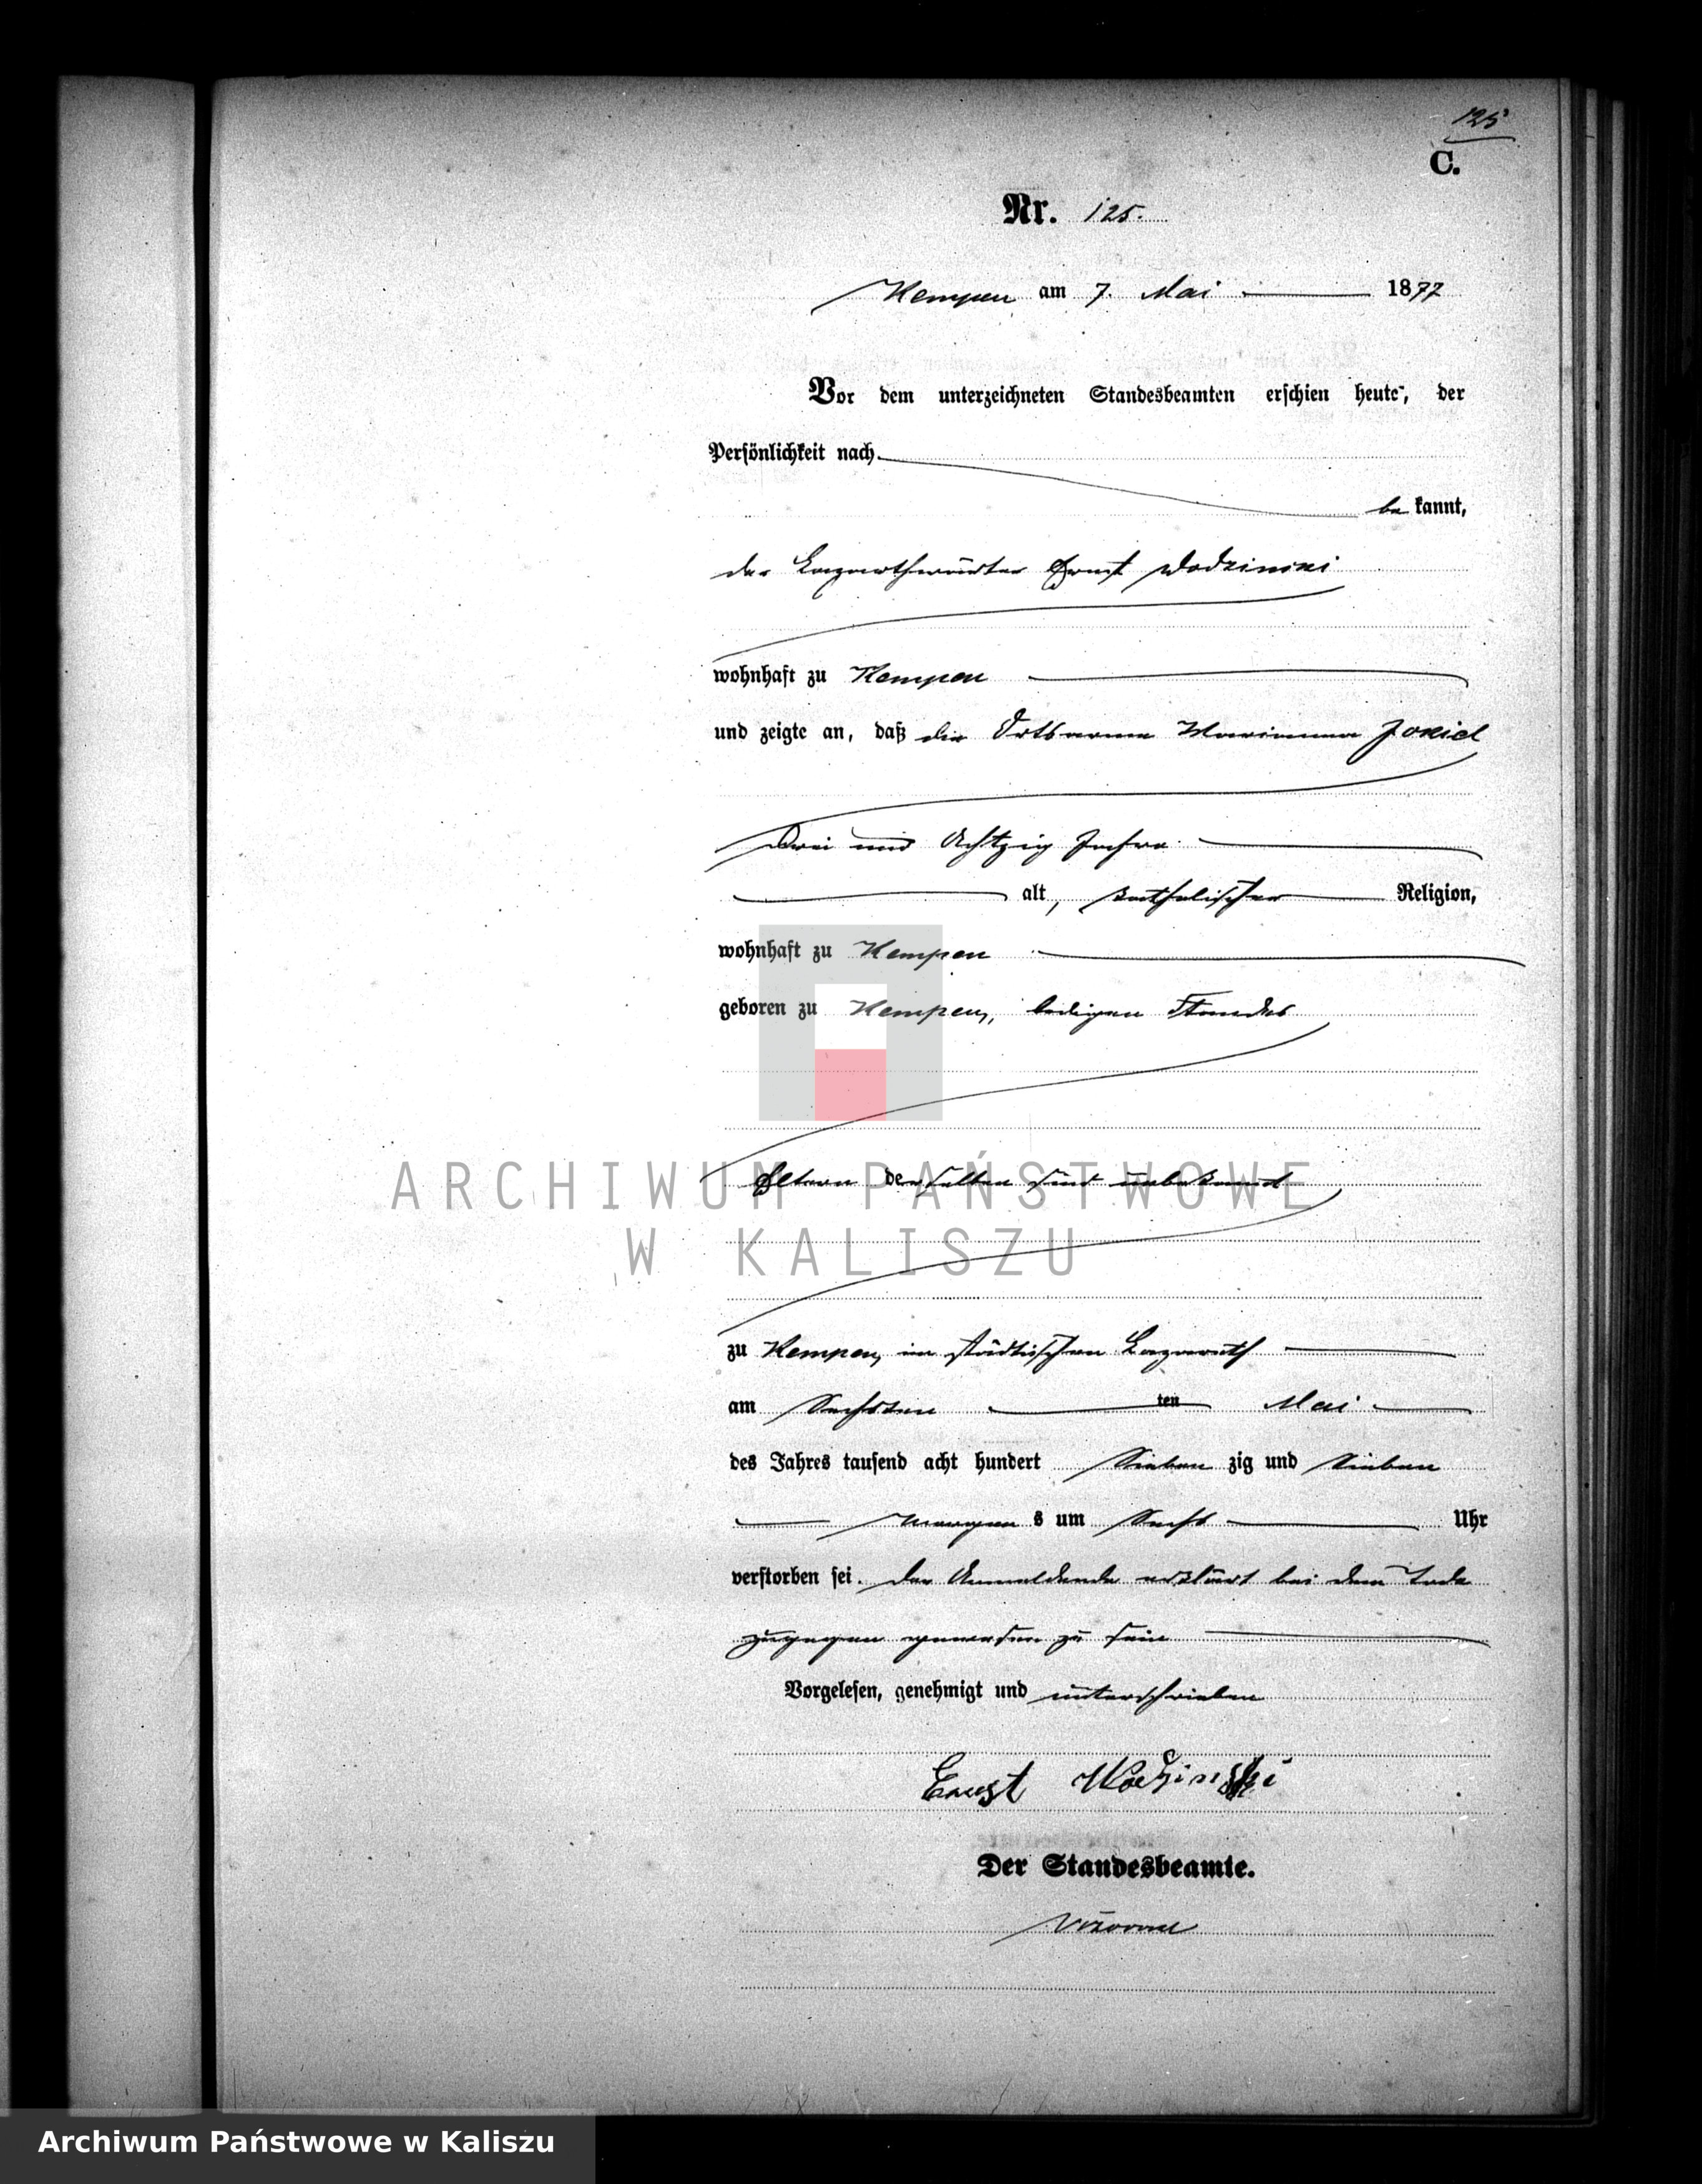 125
C.
Nr. 125.
Kempen am 7. Mai 1877
Vor dem unterzeichneten Standesbeamten erschien heute, der
Persönlichkeit nach
be kannt,
der Lazarethwärter Ernst Wodzinski
wohnhaft zu Kempen
und zeigte an, daß die Ortsarme Marianna Jokiel
Drei und Achtzig Jahre
alt, katholischer Religion,
wohnhaft zu Kempen
geboren zu Kempen, ledigen Standes
Eltern derselben sind unbekannt
ARCHIWUM PAŃSTWOWE
W KALISZU
zu Kempen, im städtischen Lazareth
am Sechsten ten Mai
des Jahres tausend acht hundert Sieben zig und Sieben
Morgen s um Sechs Uhr
verstorben sei. Der Anmeldende erklärt bei dem Tode
zugegen gewesen zu sein
Vorgelesen, genehmigt und unterschrieben
Ernst Wodzinski
Der Standesbeamte.
Archiwum Państwowe w Kaliszu